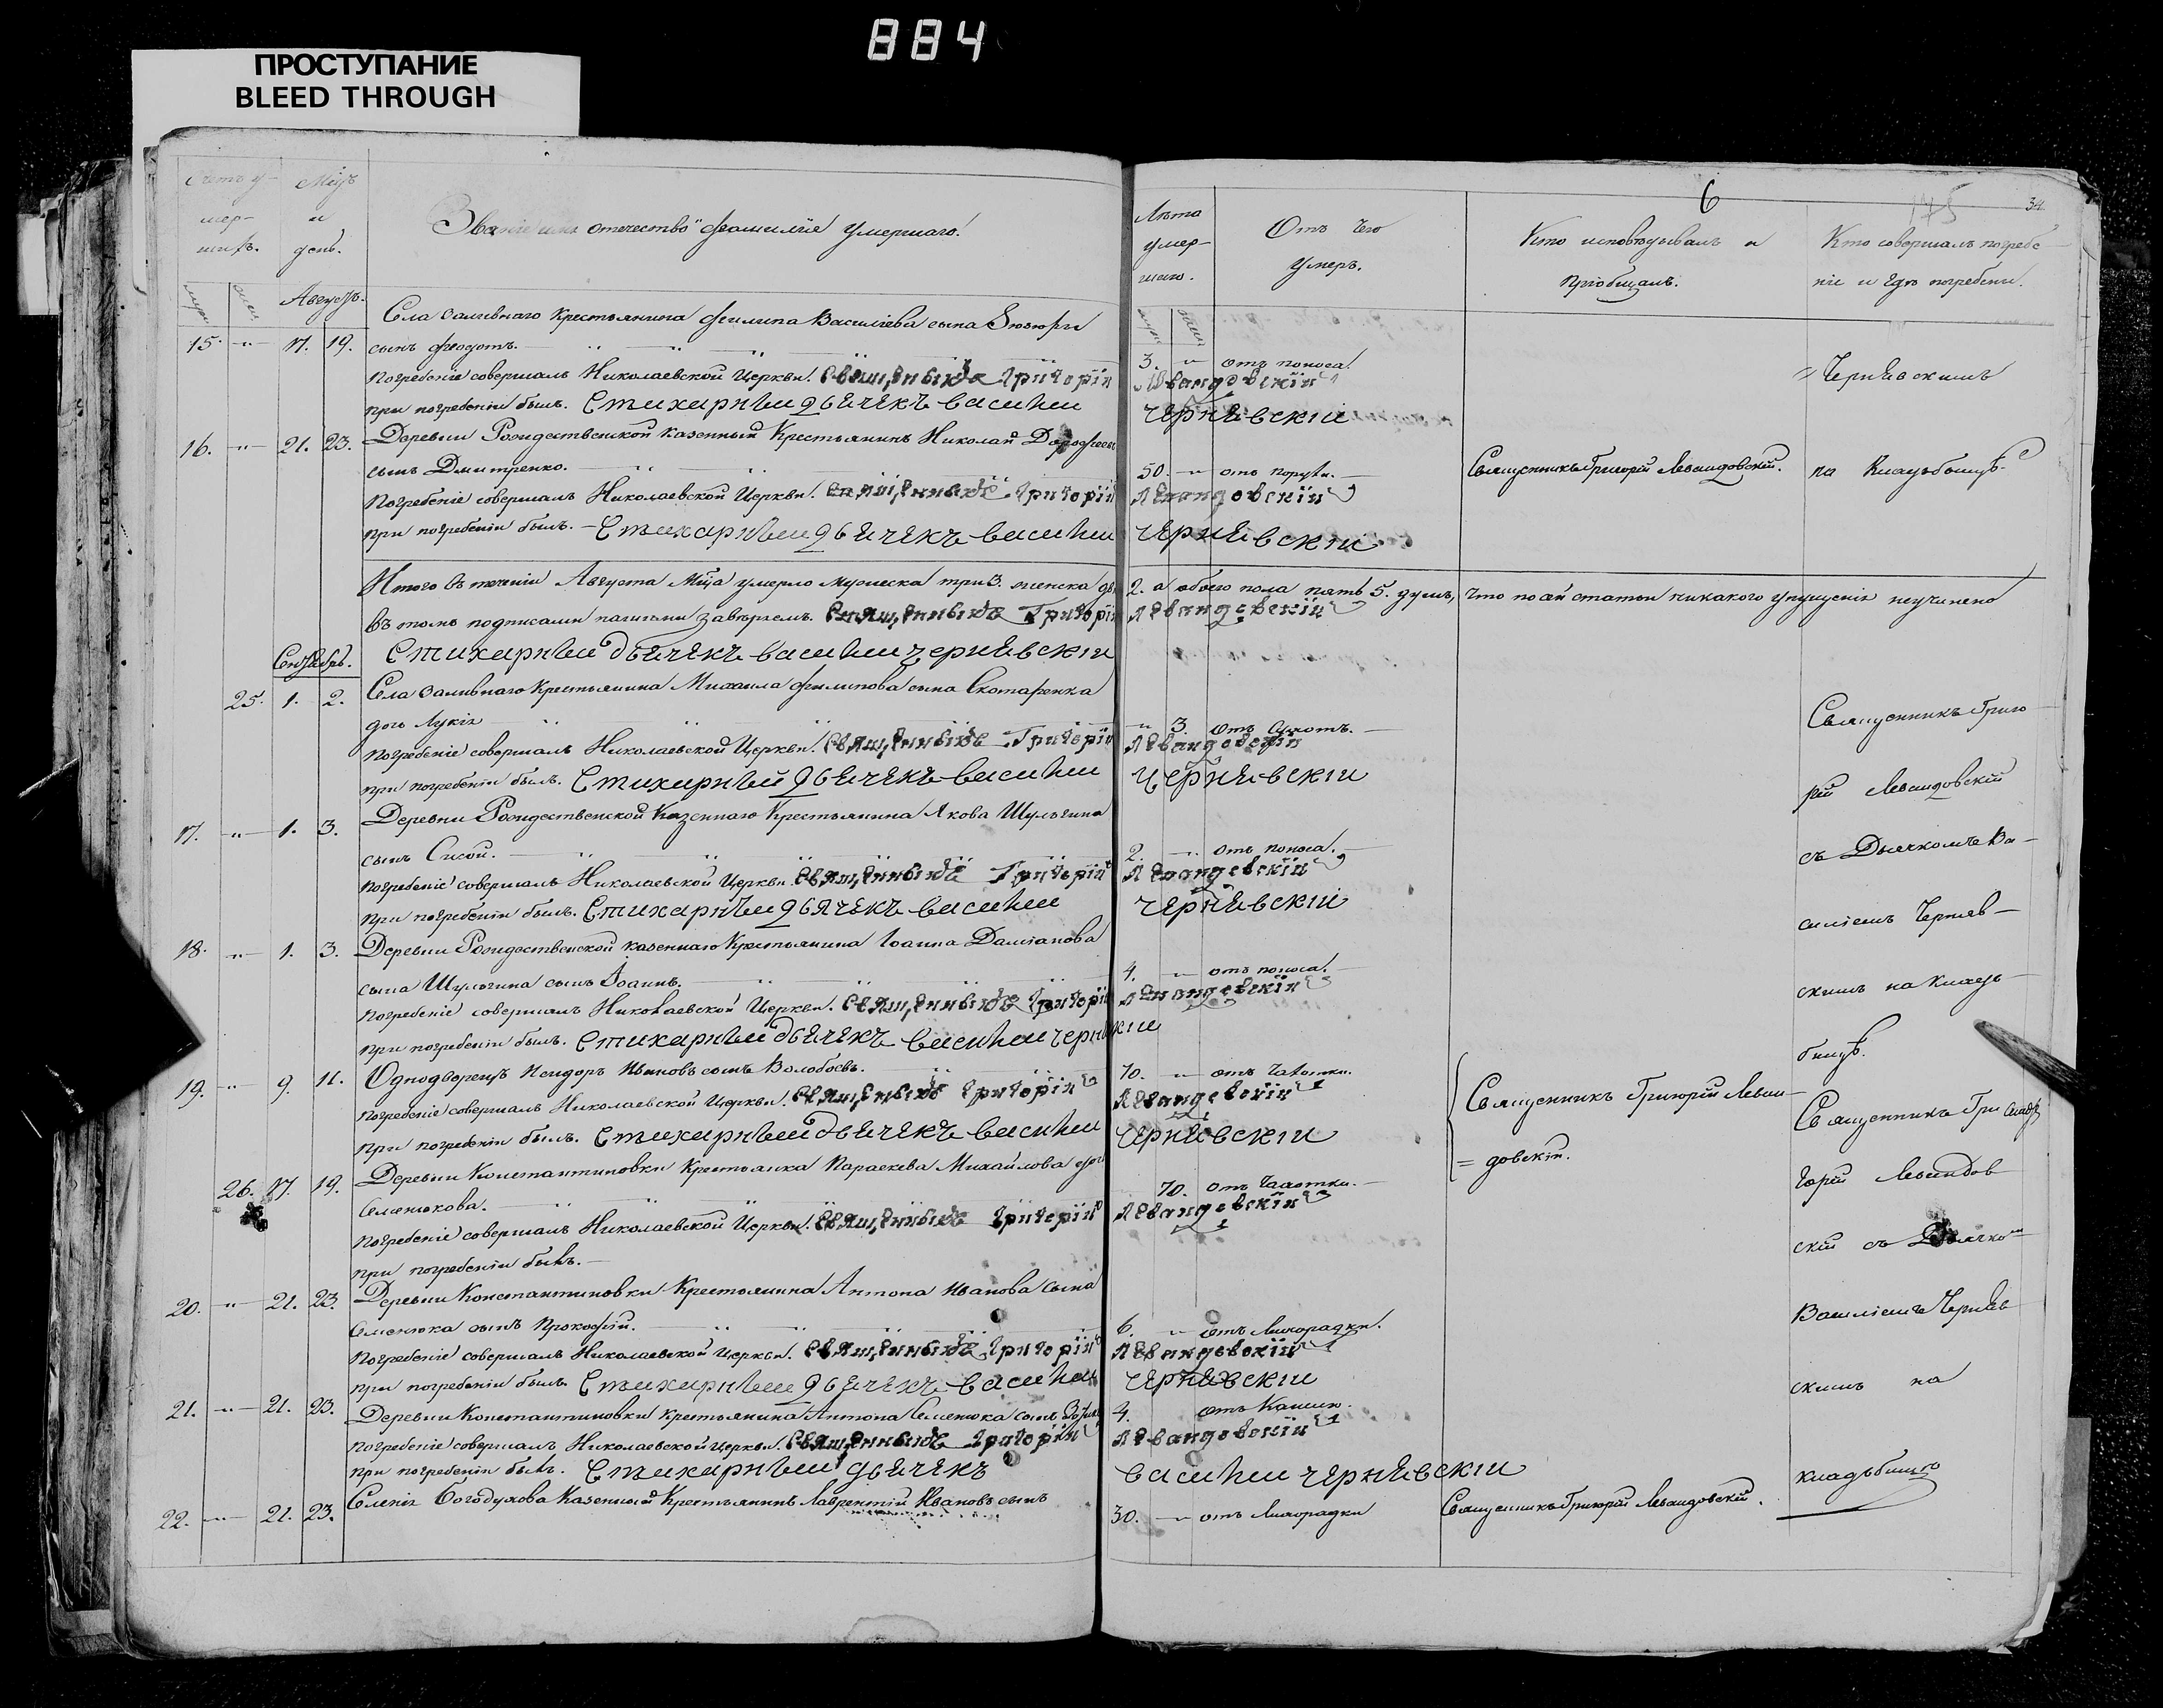 884
ПРОСТУПАНИЕ
BLEED THROUGH
Счетъ у-
мер-
шихъ.
Мцъ
и
день.
Званіе имя отечество и фамиліе умершаго.
Августъ.
15. " 17. 19. Села Заливнаго Крестьянина Филипа Василіева сына
сынъ Феодотъ.
Погребеніе совершалъ Николаевской Церкви. Священникъ Григорій
при погребеніи былъ. Стихарный дьячекъ василий
16. " 21. 23. Деревни Рождественской казенный Крестьянинъ Николай Дорофеевъ
сынъ Дмитренко.
Погребеніе совершалъ Николаевской Церкви. Священникъ Григорій
при погребеніи былъ. Стихарный дьячекъ василий
Итого въ теченіи Августа Мца умерло мужеска три 3. женска две
въ томъ подписами нашими заверяемъ. Священникъ Григорій
Стихарный дьячекъ василий чернявскій
Сентябрь.
25. 1. 2. Села Заливнаго Крестьянина Михаила Филипова сына Скотаренка
дочь Лукія
Погребеніе совершалъ Николаевской Церкви. Священникъ Григорій
при погребеніи былъ. Стихарный дьячекъ василий
17. " 1. 3. Деревни Рождественской Казеннаго Крестьянина Якова Шульгина
сынъ Сисой.
Погребеніе совершалъ Николаевской Церкви. Священникъ Григорій
при погребеніи былъ. Стихарный дьячекъ василий
18. " 1. 3. Деревни Рождественской казеннаго Крестьянина Іоанна Даміанова
сына Шульгина сынъ Іоаннъ.
Погребеніе совершалъ Николаевской Церкви. Священникъ Григорій
при погребеніи былъ. Стихарный дьячекъ василий чернявскій
19. " 9. 11. Однодворецъ Исидоръ Ивановъ сынъ Волобоевъ.
Погребеніе совершалъ Николаевской Церкви. Священникъ Григорій
при погребеніи былъ. Стихарный дьячекъ василий
26. 17. 19. Деревни Константиновки Крестьянка Параскева Михайлова дочь
Семенюкова.
Погребеніе совершалъ Николаевской Церкви. Священникъ Григорій
при погребеніи былъ.
20. " 21. 23. Деревни Константиновки Крестьянина Антона Иванова сына
Семенюка сынъ Прокофій.
Погребеніе совершалъ Николаевской Церкви. Священникъ Григорій
при погребеніи былъ. Стихарный дьячекъ василий
21. " 21. 23. Деревни Константиновки крестьянина Антона Семенюка сынъ
Погребеніе совершалъ Николаевской Церкви. Священникъ Григорій
при погребеніи былъ. Стихарный дьячекъ
22. " 21. 23. Селенія Богодухова Казенный Крестьянинъ Лаврентій Ивановъ сынъ
6
175
34
Лѣта
умер-
шаго.
Отъ чего
умеръ.
Кто исповѣдывалъ и
пріобщалъ.
Кто совершалъ погребе
ніе и гдѣ погребены.
3. " отъ поноса.
Левандовскій
= Чернявскимъ
чернявскій
50. " отъ
Священникъ Григорій Левандовскій.
на Кладьбищѣ
Левандовскій
чернявскій
2. а обоего пола пять 5. душъ, что по ей статьи никакого упущенія неучинено
Левандовскій
" 3. отъ сухотъ.
Священникъ Григо
Левандовскій
чернявскій
рій Левандовскій
2. " отъ поноса.
съ Дьячкомъ Ва-
Левандовскій
чернявскій
силіемъ Чернев-
4. " отъ поноса.
скимъ на Кладь-
Левандовскій
бищѣ.
70. " отъ чахотки.
Священникъ Григорій Леван-
Священникъ Гри
Левандовскій
чернявскій
= довскій.
70. отъ чахотки.
горій Левандов
Левандовскій
скій съ Дьячкомъ
6. " отъ лихорадки.
Василіемъ Черняв
Левандовскій
чернявскій
скимъ на
4. отъ Кашлю.
Левандовскій
василий чернявскій
кладьбищѣ
30. " отъ лихорадки
Священникъ Григорій Левандовскій.